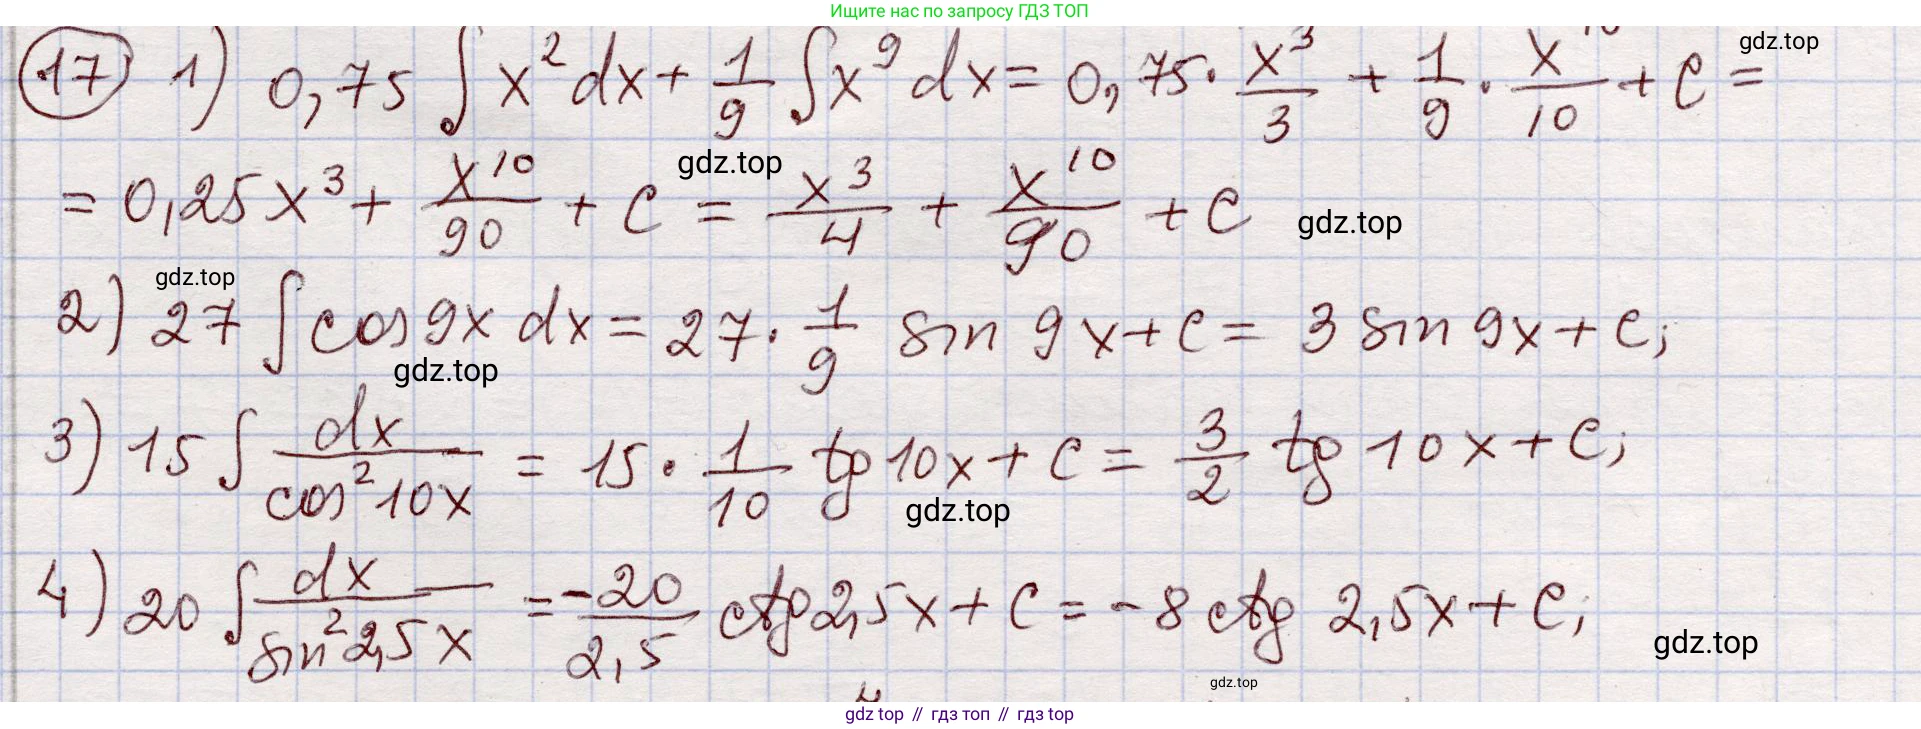 Ищите нас по запросу ГДЗ ТОП
17 1) 0,75 ∫ x² dx + 1/9 ∫ x⁹ dx = 0,75 · x³/3 + 1/9 · x¹⁰/10 + C =
gdz.top
= 0,25x³ + x¹⁰/90 + C = x³/4 + x¹⁰/90 + C
gdz.top
gdz.top
gdz.top
2) 27 ∫ cos 9x dx = 27 · 1/9 sin 9x + C = 3 sin 9x + C;
gdz.top
3) 15 ∫ dx/cos² 10x = 15 · 1/10 tg 10x + C = 3/2 tg 10x + C;
gdz.top
4) 20 ∫ dx/sin² 2,5x = -20/2,5 ctg 2,5x + C = -8 ctg 2,5x + C;
gdz.top
gdz.top
gdz top // гдз топ // гдз top